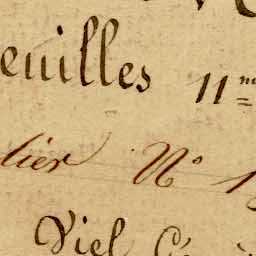 euilles 11me
lier No 1
Viel